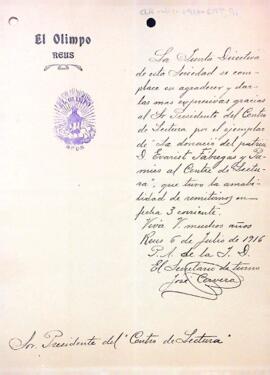 El Olimpo
REUS
La Junta Directiva
de esta Sociedad se com-
place en agradecer y dar
las mas expresivas gracias
al Sr Presidente del Centro
de Lectura por el ejemplar
de "La donació del patrici
D. Evarist Fàbregas y Pa-
mies al Centre de Lectu-
ra", que tuvo la amabi-
lidad de remitirnos en
fecha 3 corriente.
Viva V. muchos años
Reus 6 de Julio de 1916
P. A. de la J. D.
El Secretario de turno
José Cervera
Sr. Presidente del "Centro de Lectura"